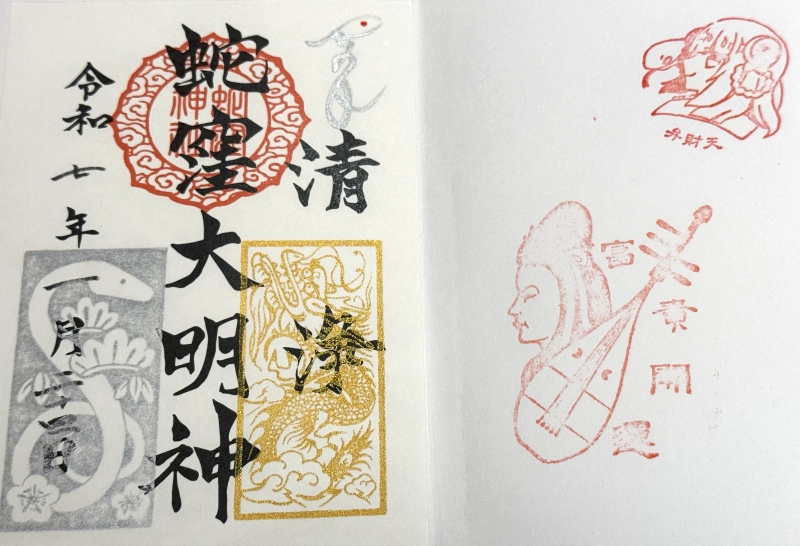 清浄
蛇窪大明神
蛇窪神社
令和七年一月二十四日
弁財天
富貴開運